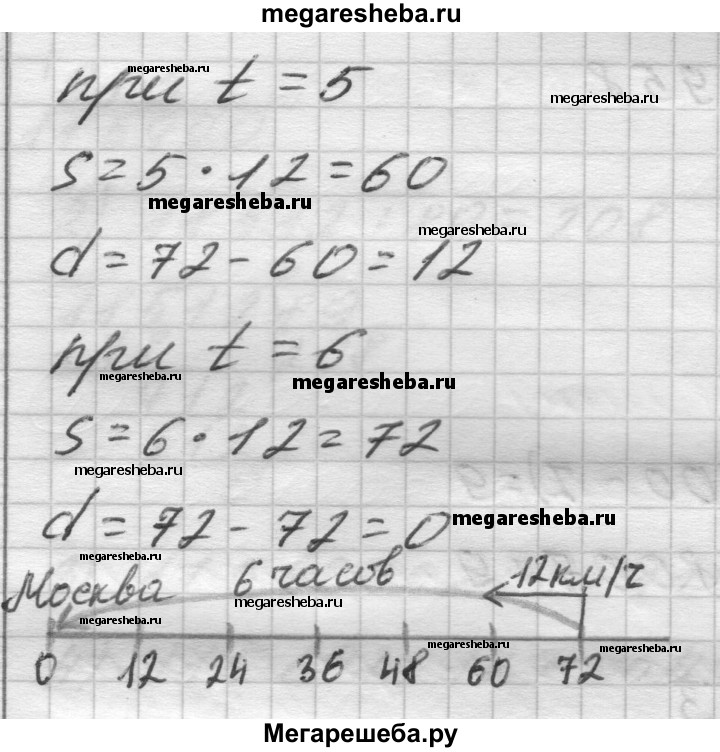 megaresheba.ru
megaresheba.ru
при t = 5
megaresheba.ru
s = 5 · 12 = 60
megaresheba.ru
megaresheba.ru
d = 72 - 60 = 12
при t = 6
megaresheba.ru
megaresheba.ru
s = 6 · 12 = 72
megaresheba.ru
d = 72 - 72 = 0
megaresheba.ru
megaresheba.ru
Москва 6 часов 12км/ч
megaresheba.ru
megaresheba.ru
megaresheba.ru
megaresheba.ru
0 12 24 36 48 60 72
Мегарешеба.ру